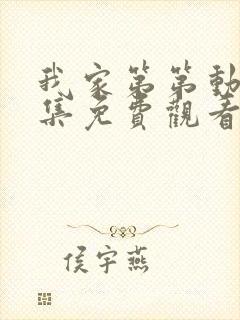 我家第第動
集免費觀看
侯宇燕